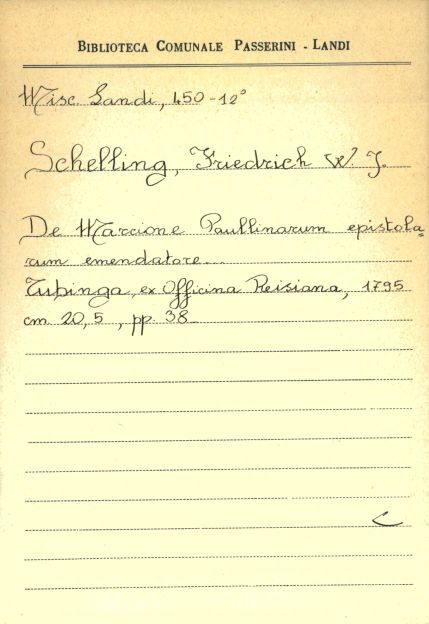 BIBLIOTECA COMUNALE PASSERINI - LANDI
Misc. Landi, 450-12°
Schelling, Friedrich W. J.
De Marcione Paullinarum epistola=
rum emendatore...
Tubinga, ex Officina Reisiana, 1795
cm. 20,5, pp. 38
C